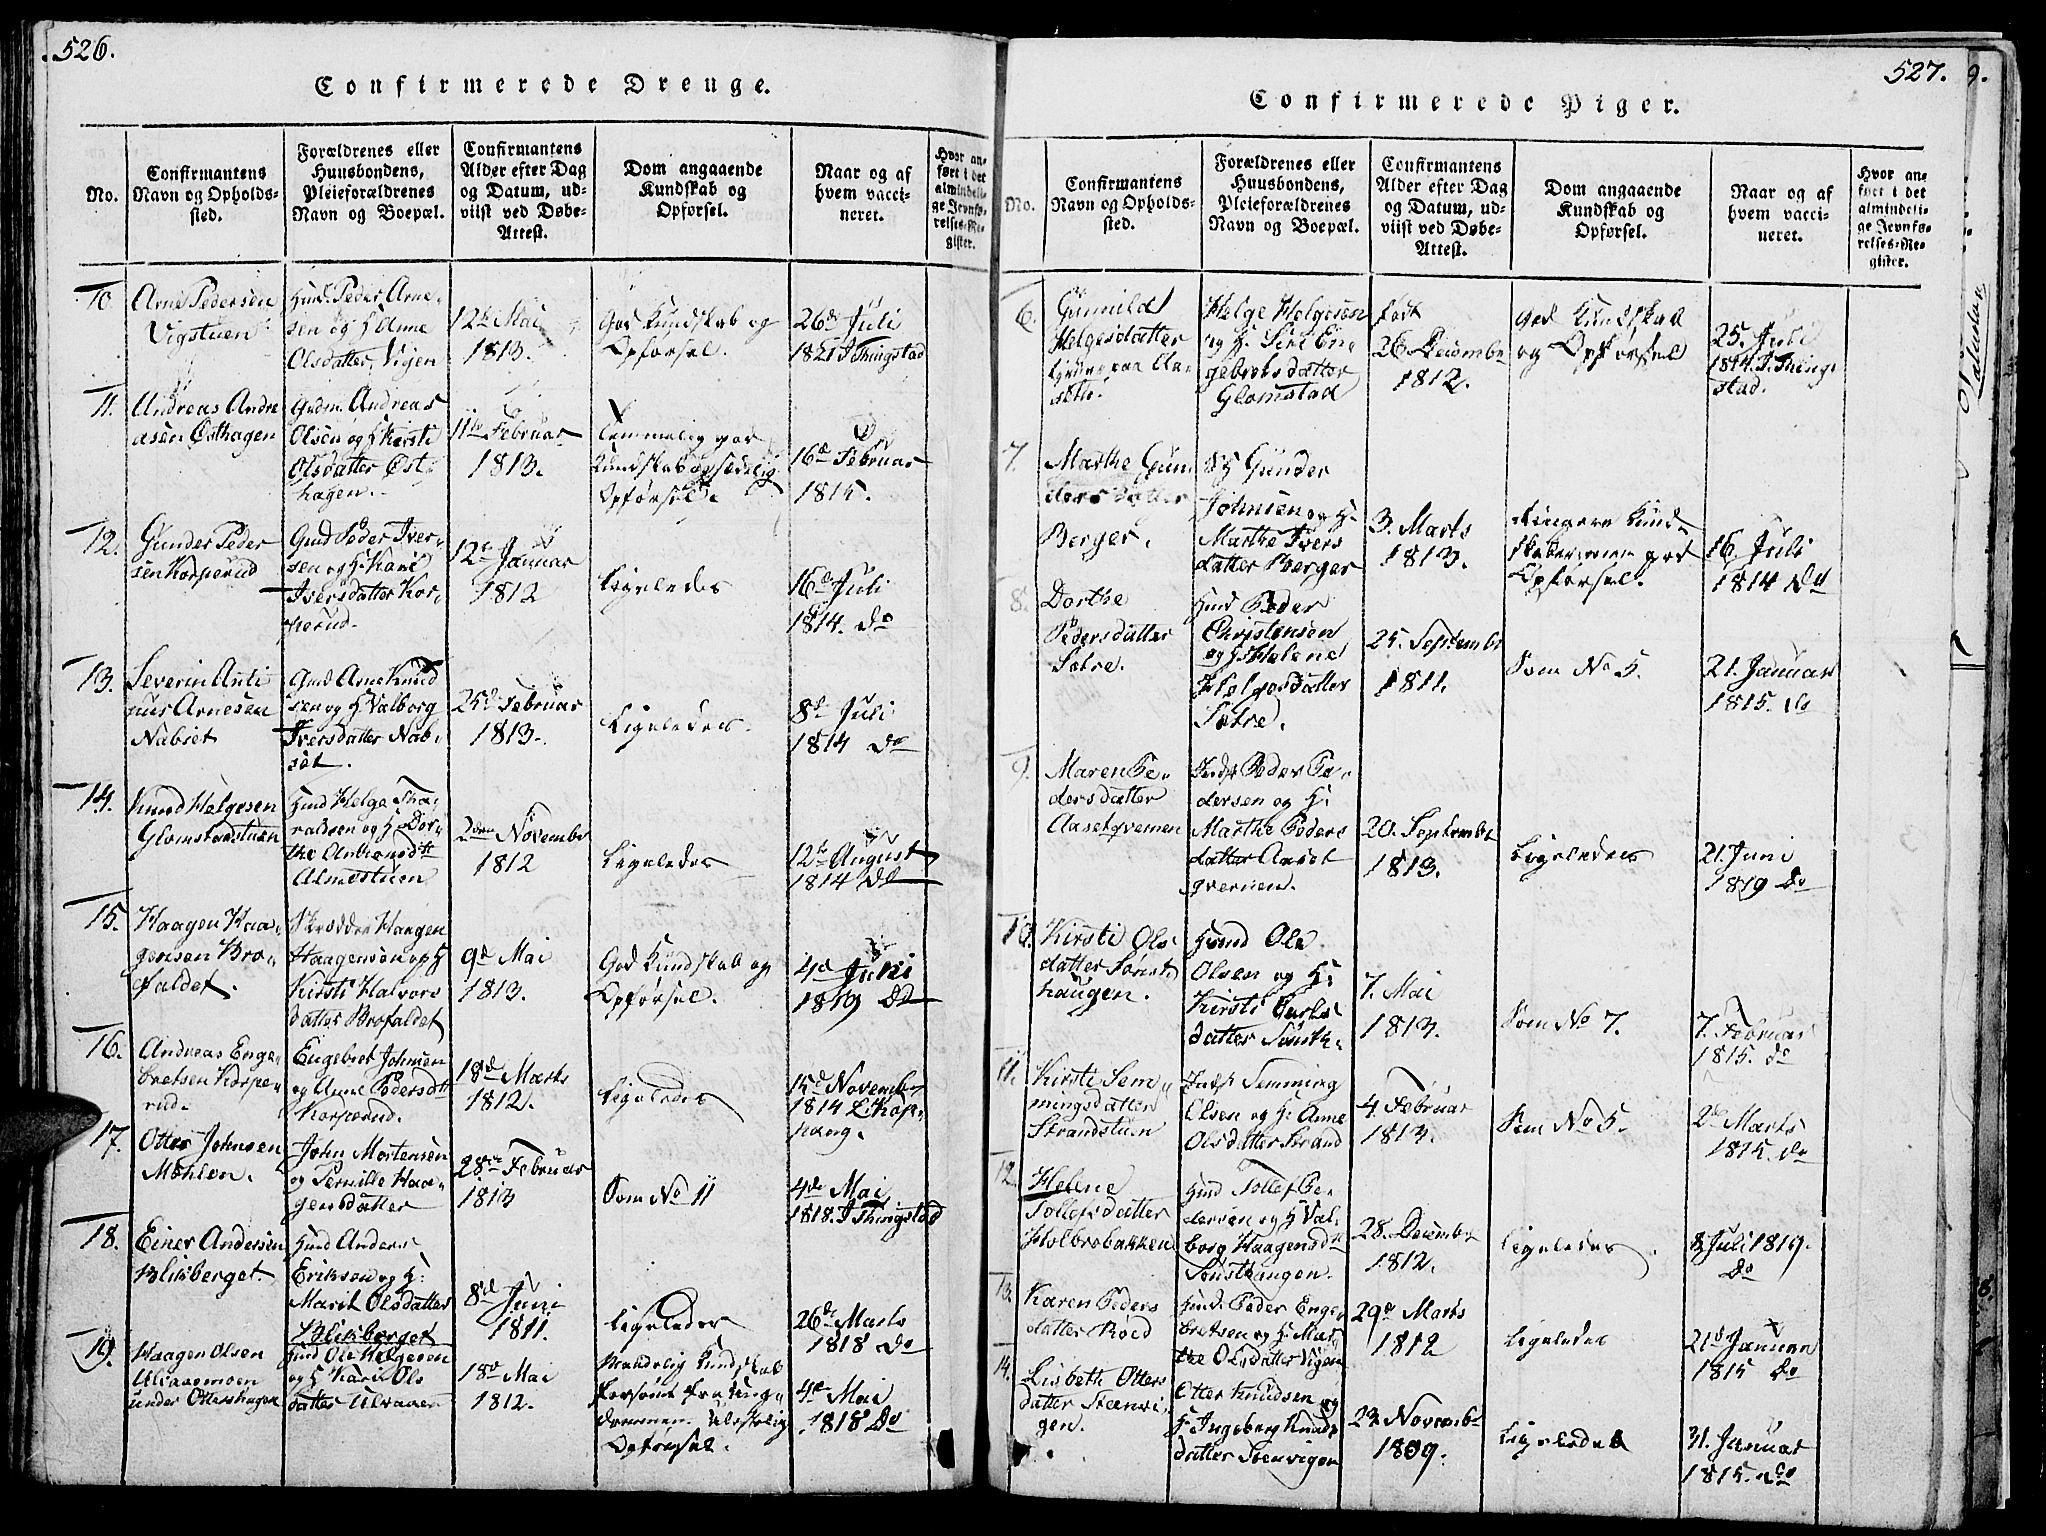 526.
Confirmerede Drenge.
No.
Confirmantens
Navn og Opholds-
sted.
Forældrenes eller
Huusbondens,
Pleieforældrenes
Navn og Boepæl.
Confirmantens
Alder efter Dag
og Datum, ud-
viist ved Døbe-
Attest.
Dom angaaende
Kundskab og
Opførsel.
Naar og af
hvem vacci-
neret.
Hvor an-
ført i det
almindeli-
ge Jevnfø-
relses-Re-
gister.
10
Arne Pedersen
Vigstuen
Huusm. Peder Arne-
sen og H Anne
Olsdatter, Vigen
12te Mai
1813.
God Kundskab og
Opførsel.
26de Juli
1821 J Thingstad
11.
Andreas Andre
asen Østhagen
Gmd. Andreas
Olsen og H Kirsti
Olsdatter Øst-
hagen.
11te Februar
1813.
Temmelig god
Kundskab og sædelig
Opførsel.
16de Februar
1815.
12.
Gunder Peder
sen Korperud
Gmd Peder Iver-
sen og H. Kari
Iversdatter Kor-
perud.
12te Januar
1812
Ligeledes
16de Juli
1814. do
13.
Severin Anti
nus Arnesen
Nabset
Gmd Arne Knud
sen og H Valborg
Iversdatter Nab-
set.
25de Februar
1813.
Ligeledes.
8de Juli
1814 do
14.
Knud Helgesen
Glomstadstuen
Huusmd Helge Tha-
raldsen og H Dor-
the
Almestuen
2den November
1812
Ligeledes
12te August
1814 do
15.
Haagen Haa-
gensen Bro-
faldet.
Skrædder Haagen
Haagensen og H
Kirsti Halvors
datter Brofaldet
9de Mai
1813.
God Kundskab og
Opførsel.
4de Juni
1819 do
16.
Andreas Enge-
bretsen Korpe-
rud.
Engebret Johnsen
og Anne Pedersdtr
Korperud.
18de Marts
1812.
Ligeledes
15de November
1814
17.
Otter Johnsen
Møhlen.
John Mortensen
og Pernille Haa-
gensdatter
28de Februar
1813
Som No 11
4de Mai
1818. J Thingstad
18.
Einer Andersen
Blikberget.
Huusmd Anders
Eriksen og H:
Marit Olsdatter
Blikberget
8de Juni
1811.
Ligeledes
26de Marts
1818 do
19.
Haagen Olsen
Ulvaamoen
under Ottershagen
Huusmd Ole Helgesen
og H Kari Ols
datter Ulvaaen
18de Mai
1812.
Maadelig Kundskab
forsømt fra Ung-
dommen.
Opførsel.
4de Mai
1818 do
527.
Confirmerede Piger.
No.
Confirmantens
Navn og Opholds-
sted.
Forældrenes eller
Huusbondens,
Pleieforældrenes
Navn og Boepæl.
Confirmantens
Alder efter Dag
og Datum, ud-
viist ved Døbe-
Attest.
Dom angaaende
Kundskab og
Opførsel.
Naar og af
hvem vacci-
neret.
Hvor an-
ført i det
almindeli-
ge Jevnfø-
relses-Re-
gister.
6.
Gunild
Helgesdatter
Helge Helgesen
og H. Siri En-
gebretsdatter
Glomstad
født
26 December
1812.
god Kundskab
og Opførsel
25. Juli
1814. J. Thing-
stad.
7.
Marthe Gun
dersdatter
Berger.
Gunder
Johnsen og H.
Marthe Ivers
datter Berger
3. Marts
1813.
Ringere Kund-
skaber, men god
Opførsel.
16. Juli
1814 do
8.
Dorthe
Pedersdatter
Sætre.
Huusmd Peder
Christensen
og H Helene
Helgesdatter
Sætre.
25. September
1811.
Som No 5.
21. Januar
1815. do
9.
Maren Pe-
dersdatter
Aasetqvernen
Inds. Peder Pe-
dersen og H:
Marthe Peders
datter Aaset
qvernen.
20. September
1813.
Ligeledes
21. Juni
1819 do
10.
Kirsti Ols
datter Sønst
haugen.
Huusmd Ole
Olsen og H:
Kirsti
datter Sønsth.
7. Mai
1813.
Som No 7.
7. Februar
1815. do
11.
Kirsti Sem
mingsdatter
Strandstuen
Inds. Semming
Olsen og H: Anne
Olsdatter Strand
4. Februar
1813.
Som No 5.
2de Marts
1815. do
12.
Helene
Tollefsdatter
Holbrobakken
Huusmd Tollef Pe-
dersen og H Val-
borg Haagensdtr
Sønsthaugen.
28. December
1812.
Ligeledes
8 Juli 1819.
do
13.
Karen Peders
datter Røed
Huusmd. Peder Enge-
bretsen og H. Mar-
the Olsdatter Vigen
29de Marts
1812
Ligeledes
21de Januar
1815 do
14.
Lisbeth Otters
datter Steenvi-
gen.
Otter Knudsen og
H. Ingeborg Knuds
datter Steenvigen
23. November
1809.
Ligeledes
31. Januar
1815. do